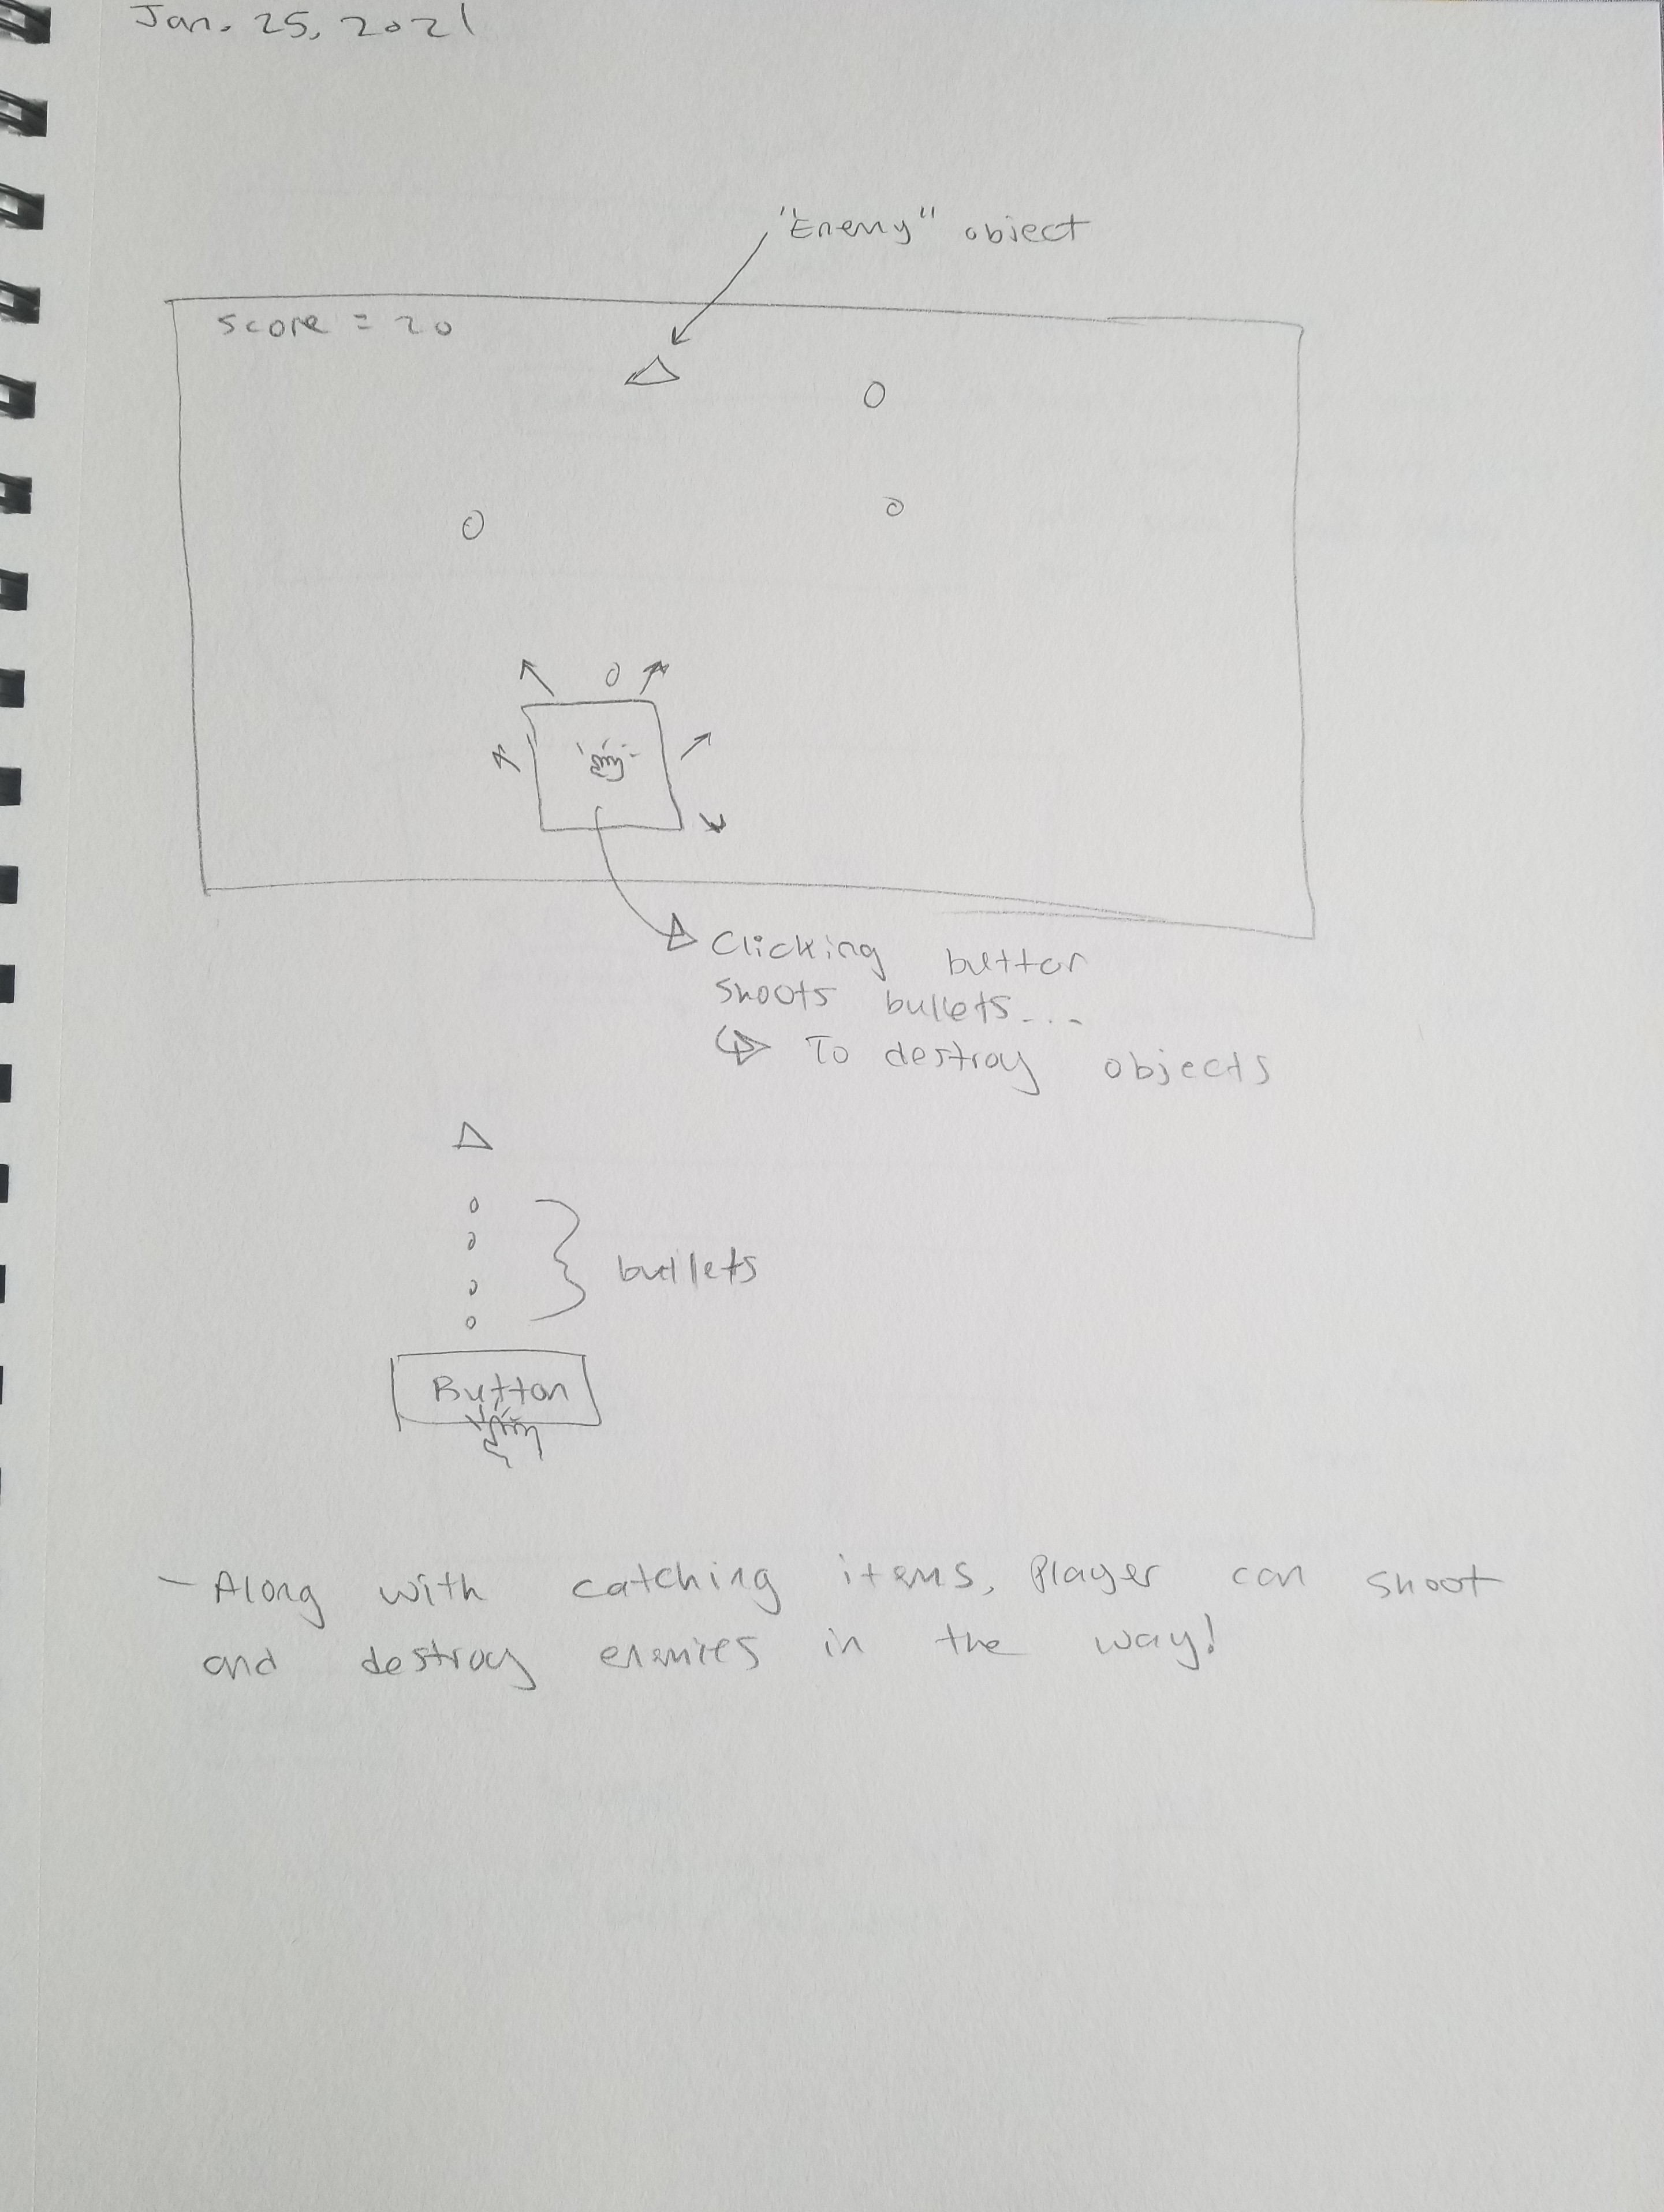 Jan. 25, 2021
"Enemy" object
score = 20
Clicking button
shoots bullets...
To destroy objects
bullets
Button
- Along with catching items, Player can shoot
and destroy enemies in the way!